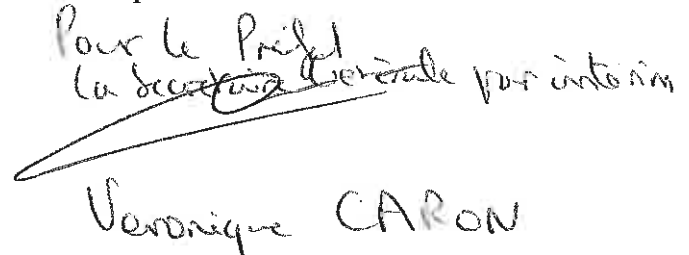 Pour le Préfet
la Secrétaire Générale par intérim
Veronique CARON